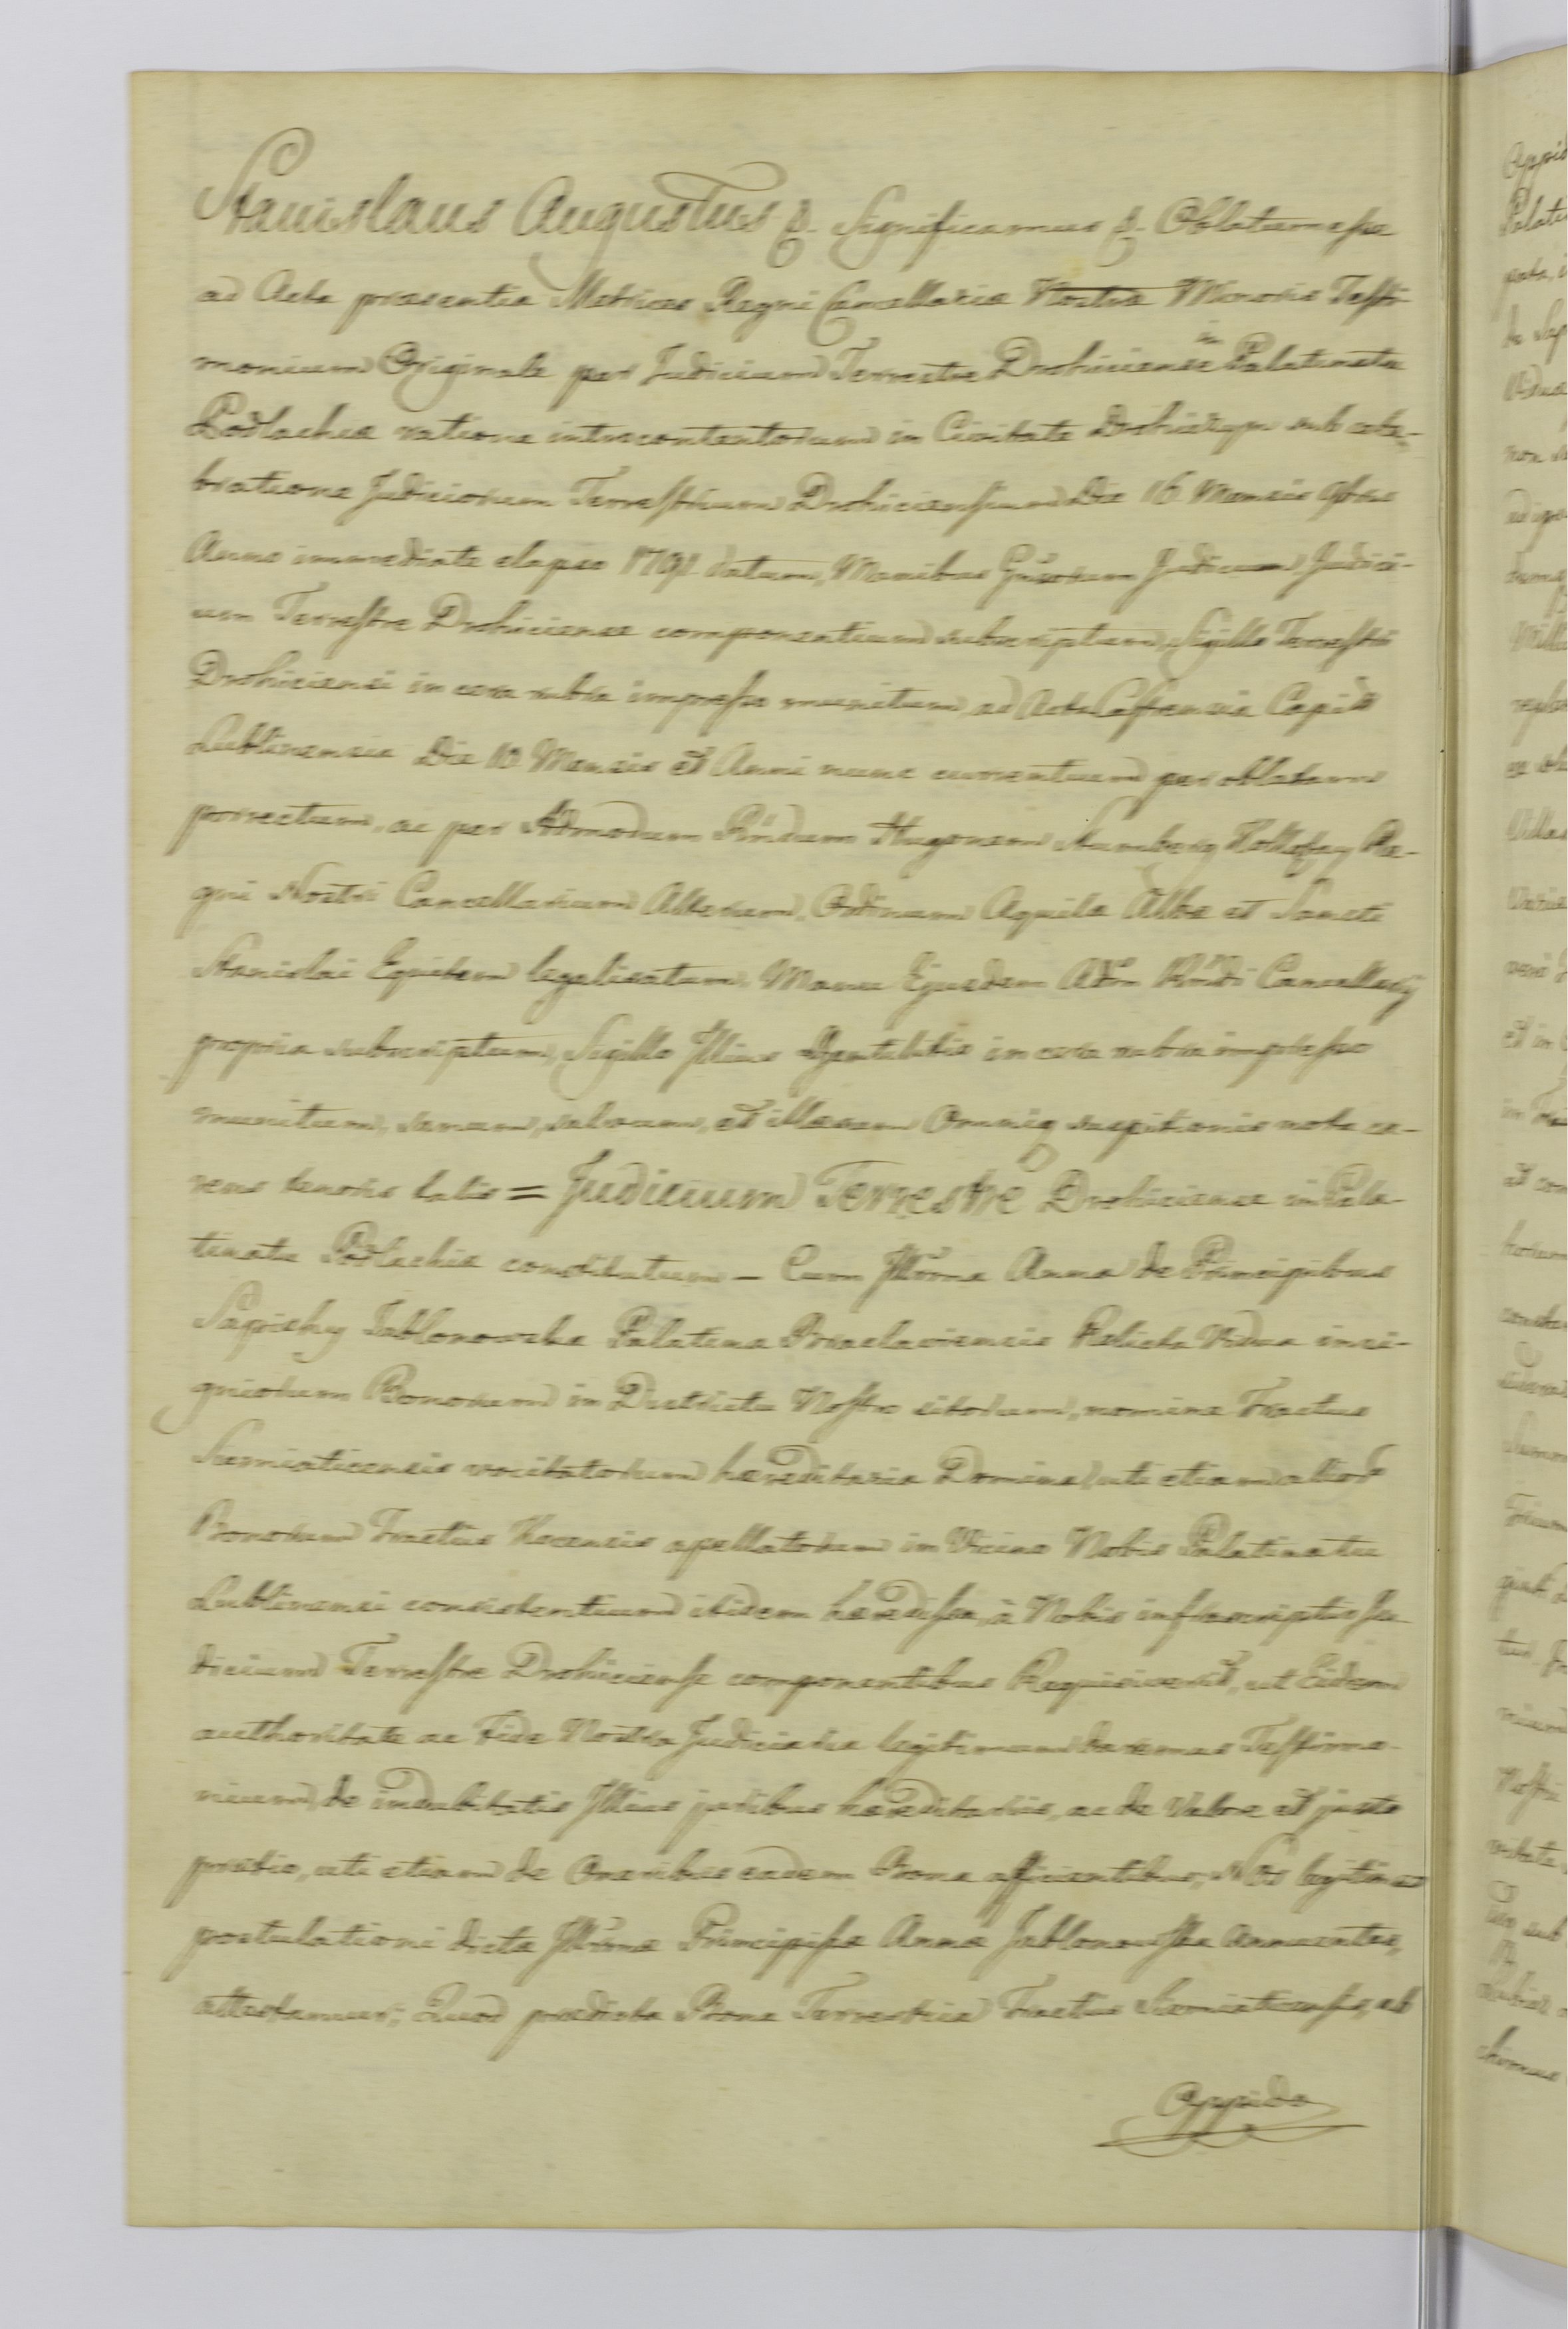 Stanislaus Augustus &. Significamus &. Oblatum esse
ad Acta præsentia Metrices Regni Cancellariæ Nostræ Minoris Testi-
monium Originale per Judicium Terrestre Drohiciense in Palatinatu
Podlachiæ ratione introcontentorum in Civitate Drohiczyn sub cele-
bratione Judiciorum Terrestrium Drohiciensium Die 16 Mensis 9bris
Anno immediate elapso 1791 datum, Manibus Gnsorum Judicum Judici-
um Terrestre Drohiciense componentium subscriptum, Sigillo Terrestri
Drohiciensi in cera rubra impresso munitum, ad Acta Castrensia Capitlia
Lublinensia Die 10 Mensis et Anni nunc currentium per oblatam
porrectum, ac per Admodum Rndum Hugonem Stumberg Kollątay Re-
gni Nostri Cancellarium Alterum, Ordinum Aquilæ Albæ et Sancti
Stanislai Equitem legalisatum, Manu Ejusdem Adm Rndi Cancellarij
propria subscriptum, Sigillo Illius Gentilitio in cera rubra impresso
munitum, sanum, salvum, et illæsum Omniq suspitionis nota ca-
rens tenoris talis = Judicium Terrestre Drohiciense in Pala-
tinatu Podlachiæ constitutum — Cum Illma Anna de Principibus
Sapiehy Jabłonowska Palatina Braclaviensis Relicta Vidua insi-
gniorum Bonorum in Districtu Nostro sitorum, nomine Tractus
Siemiaticensis vocitatorum hæreditaria Domina, uti etiam alior
Bonorum Tractus Kocensis apellatorum in Vicino Nobis Palatinatu
Lublinensi consistentium itidem hæredissa, à Nobis infrascriptis Ju-
dicium Terrestre Drohiciense componentibus Requisiverit, ut Eidem
authoritate ac Fide Nostra Judiciaria legitimum daremus Testimo-
nium, de indubitatis Illius juribus hæreditariis, ac de Valore et justo
prætio, uti etiam de Oneribus eadem Bona afficientibus; Nos legitimæ
postulationi dictæ Illmæ Principissæ Annæ Jabłonowska annuentes,
attestamur; Quod prædicta Bona Terrestria Tractus Siemiaticensis, ab
Oppido